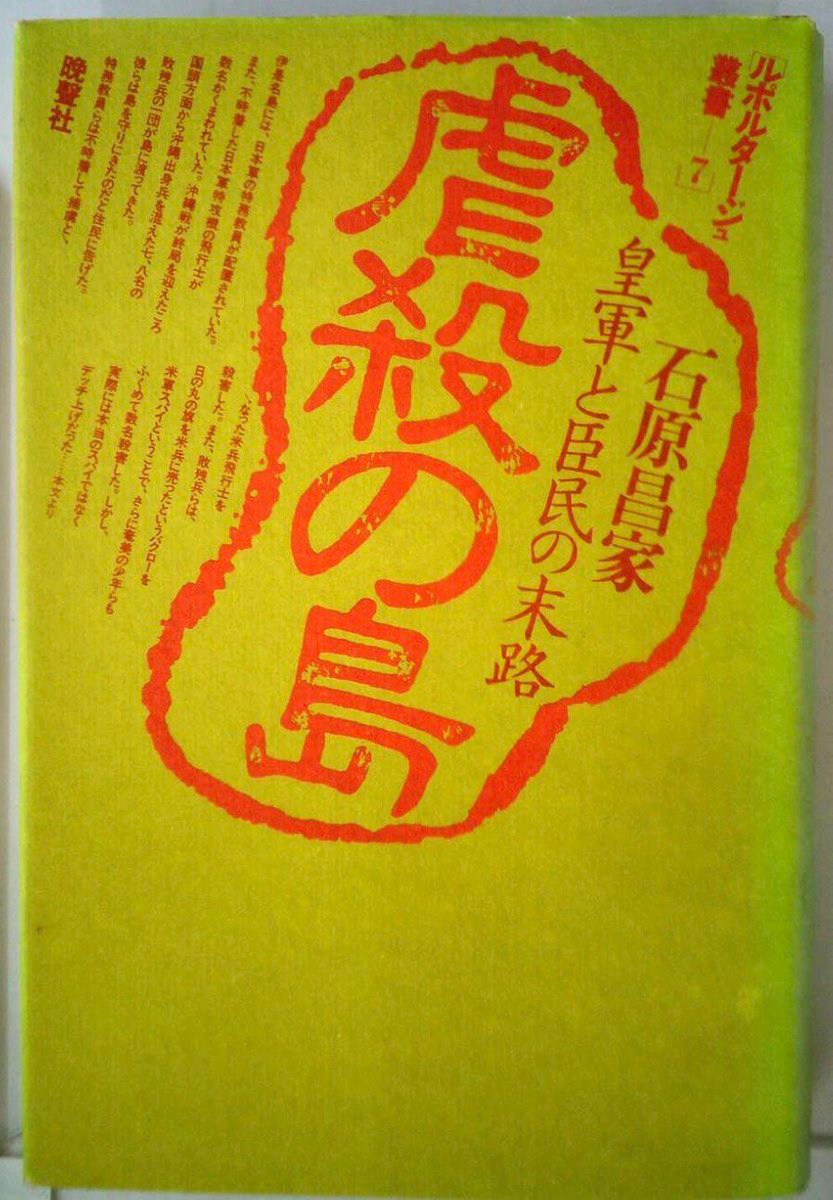 [ルポルタージュ
叢書―7]
石原昌家
皇軍と臣民の末路
虐殺の島
伊是名島には、日本軍の特務教員が配置されていた。
また、不時着した日本軍特攻機の飛行士が
数名かくまわれていた。沖縄戦が終局を迎えたころ
国頭方面から沖縄出身兵を混えた七、八名の
敗残兵の一団が島に渡ってきた。
彼らは島を守りにきたのだと住民に告げた。
特務教員らは不時着して捕虜と、
、なった米兵飛行士を
殺害した。また、敗残兵らは、
日の丸の旗を米兵に売ったというバクローを
米軍スパイということで、さらに奄美の少年らも
ふくめて数名殺害した。しかし、
実際には本当のスパイではなく
デッチ上げだった……本文より
晩聲社